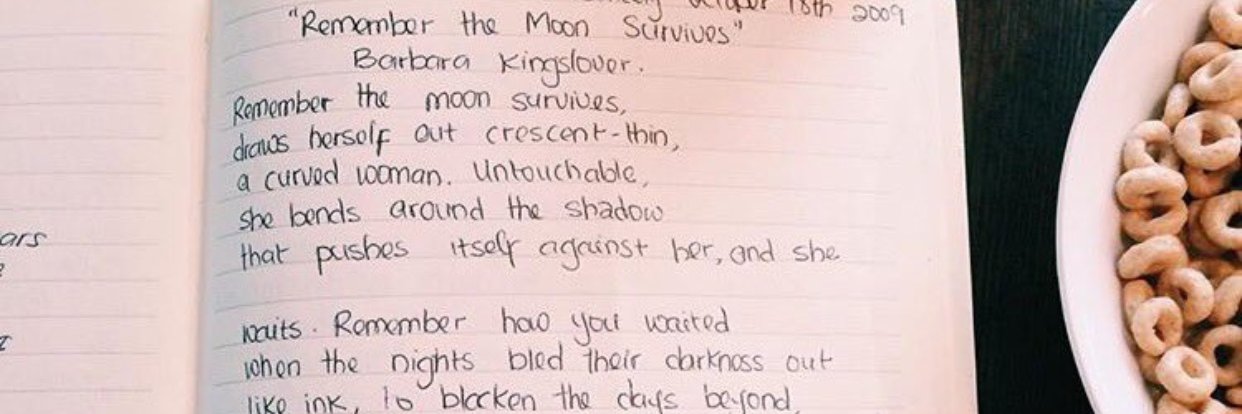 October 18th 2009
"Remember the Moon Survives"
Barbara Kingslover.
Remember the moon survives,
draws herself out crescent-thin,
a curved woman. Untouchable,
she bends around the shadow
that pushes itself against her, and she
waits. Remember how you waited
when the nights bled their darkness out
like ink, to blacken the days beyond,
ars